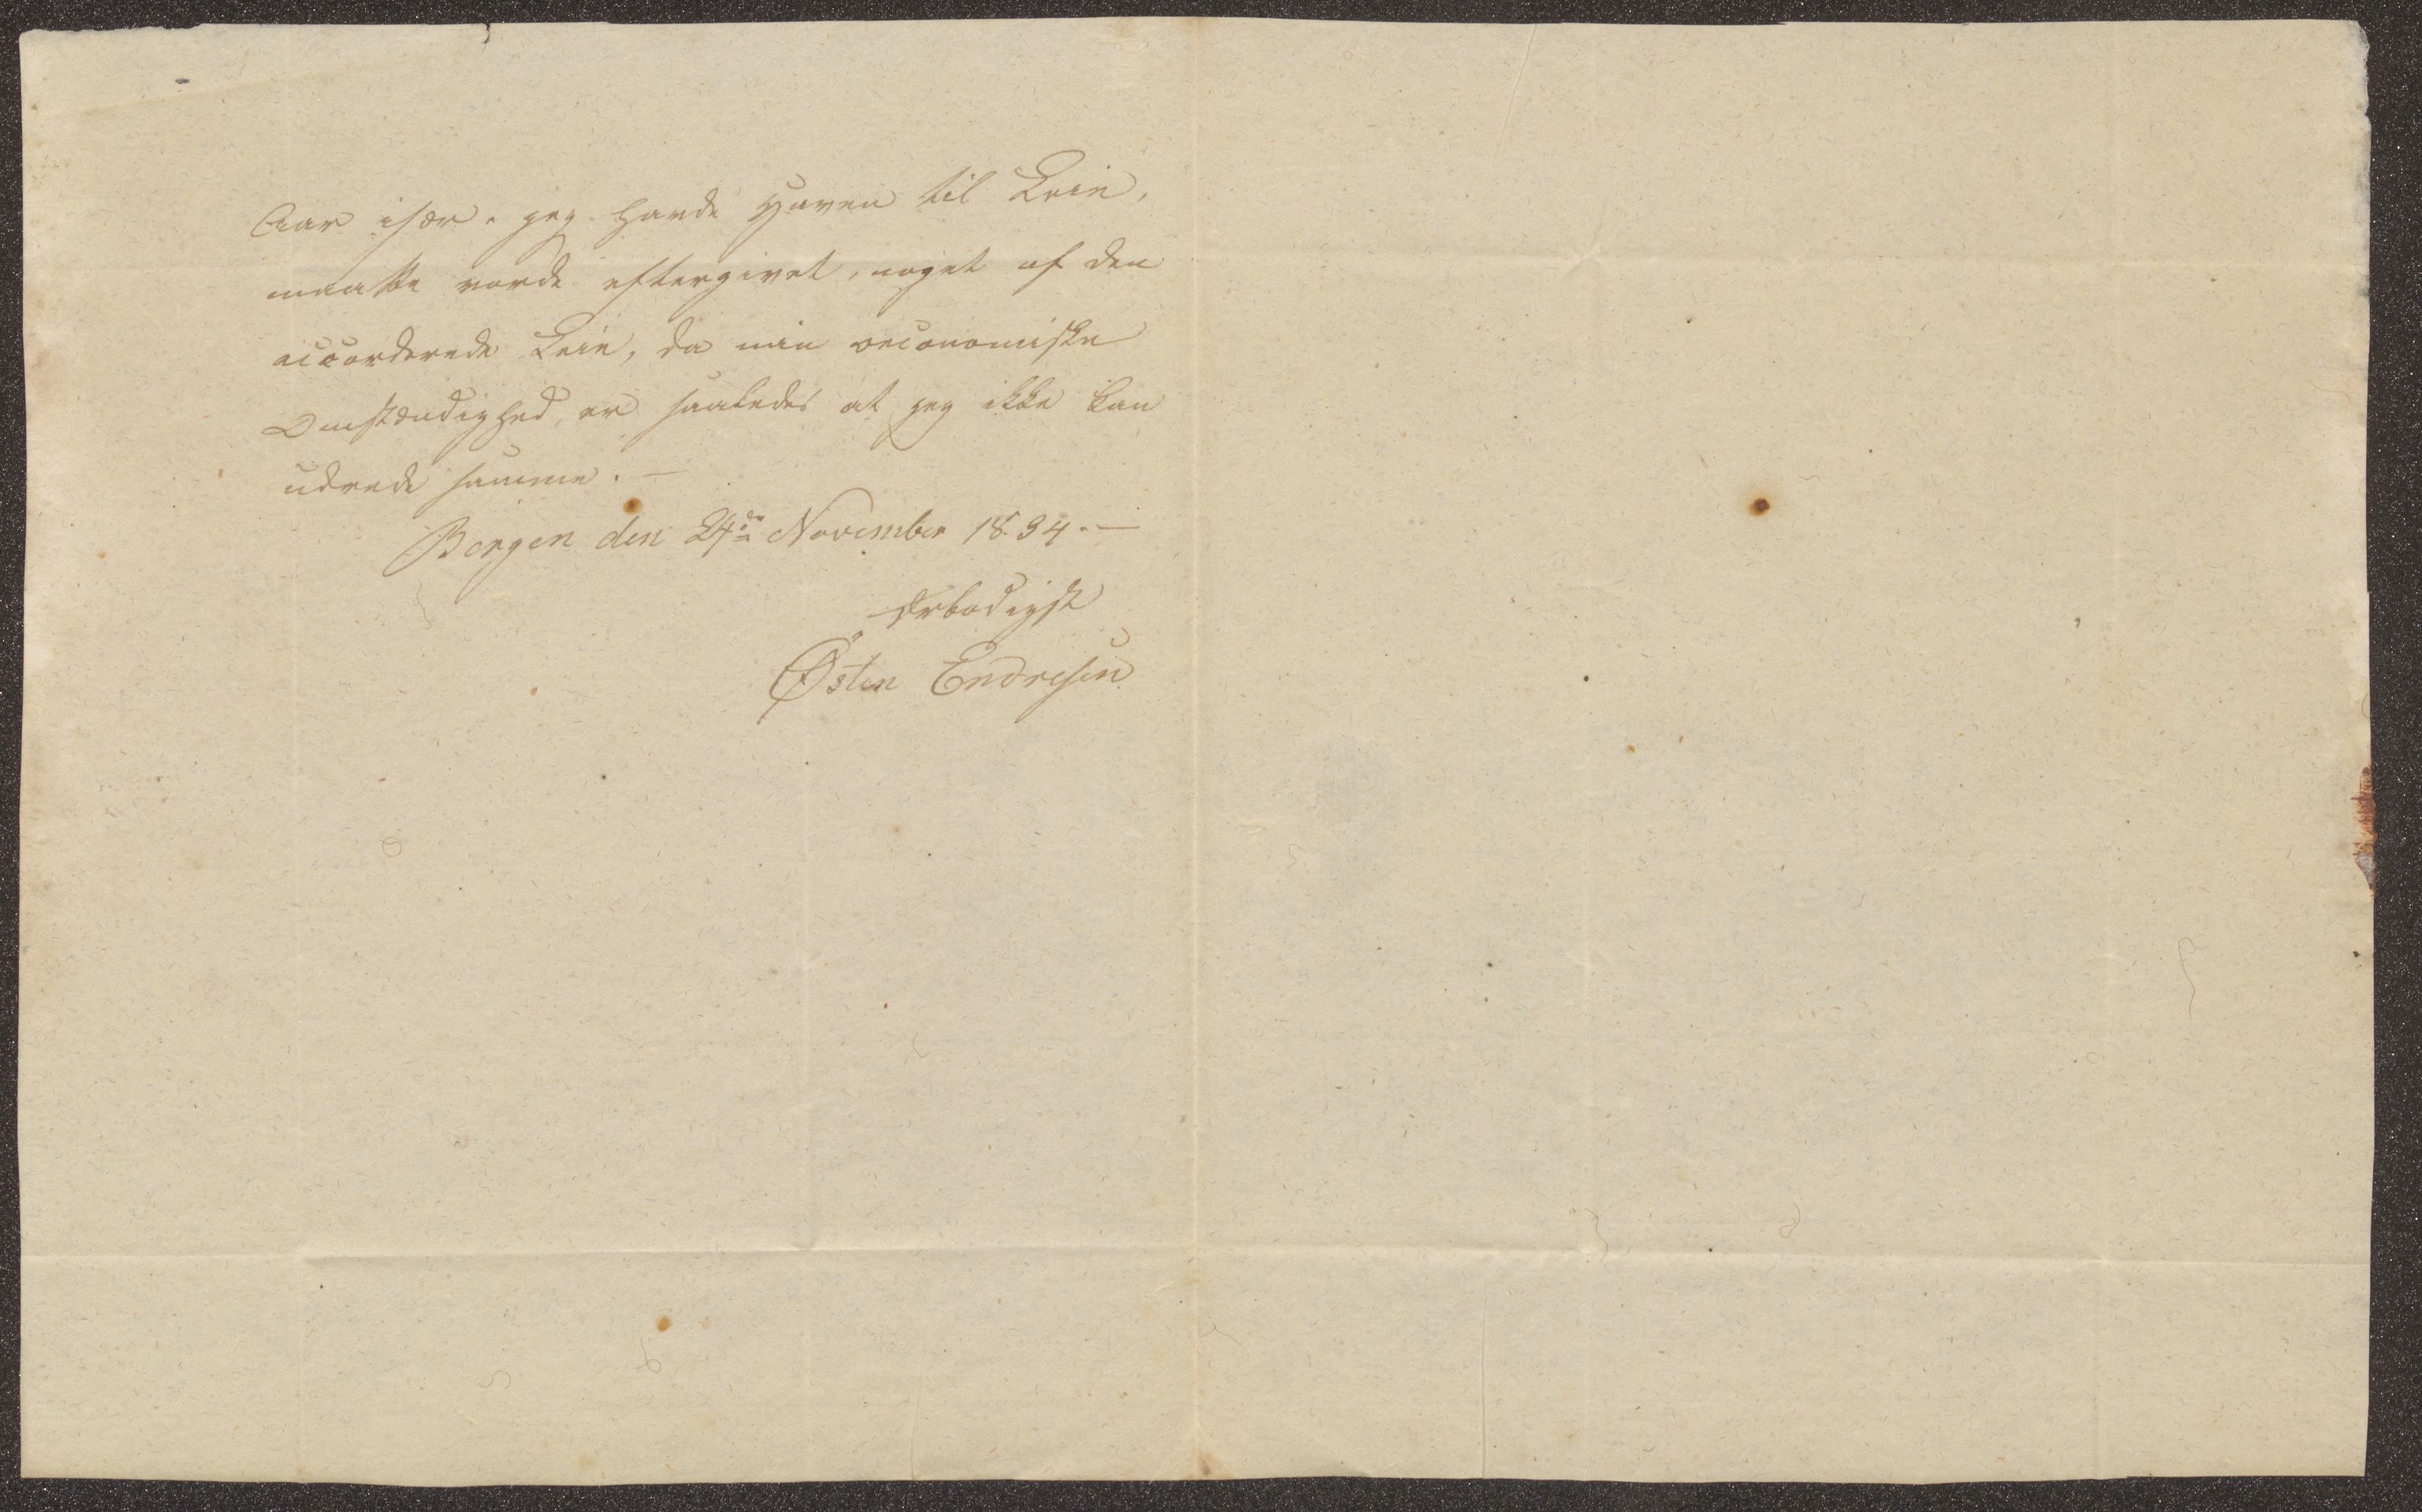 Aar især. jeg havde Haven til Leie,
maatte vorde eftergivet, noget af den
accorderede Leie, da min oeconomiske
Omstændighed, er saaledes at jeg ikke kan
udrede samme. —
Bergen den 24de November 1834. —
Ærbødigst
Østen Endresen